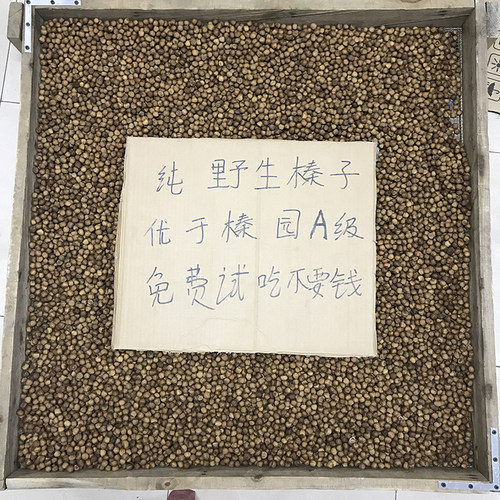 纯野生榛子
优于榛园A级
免费试吃不要钱